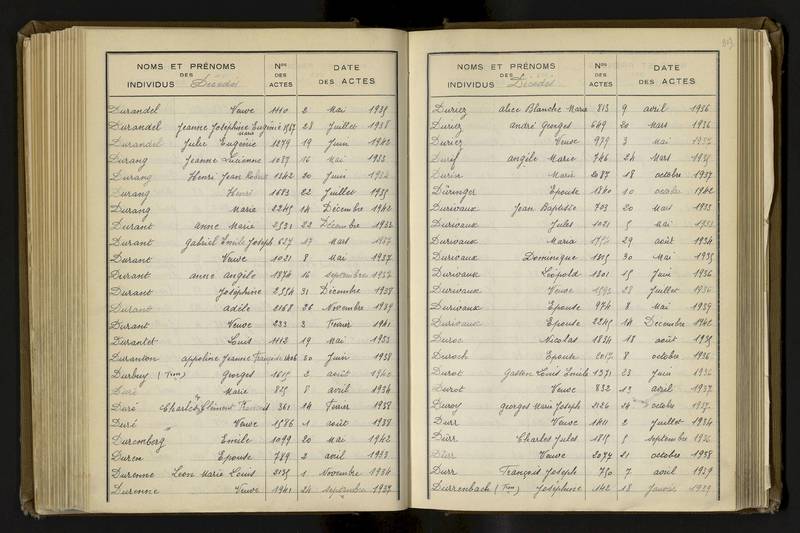 NOMS ET PRÉNOMS DES INDIVIDUS Décédés Nos DES ACTES DATE DES ACTES
Durandel Veuve 1110 2 Mai 1935
Durandel Jeanne Joséphine Eugénie 1567 28 Juillet 1938
Durandel Julie Marie Eugénie 1279 19 Juin 1942
Durang Jeanne Lucienne 1087 16 Mai 1933
Durang Henri Jean Robert 1342 20 Juin 1934
Durang Henri 1683 22 Juillet 1935
Durang Marie 2245 14 Décembre 1942
Durant anne Marie 2531 22 Décembre 1933
Durant Gabriel Emile Joseph 627 17 Mars 1937
Durant Veuve 1021 8 Mai 1937
Durant anne angèle 1874 16 septembre 1937
Durant Joséphine 2554 31 Décembre 1938
Durant adèle 2168 26 Novembre 1939
Durant Veuve 233 3 Février 1941
Durantet Louis 1112 19 Mai 1933
Duranton appoline Jeanne Françoise 30 Juin 1938
Durbuy (Fem) Georges 1615 2 août 1940
Duré Marie 825 8 avril 1934
Duré Charles Clément François 361 14 Février 1938
Duré Veuve 1586 1 août 1938
Duremberg Emile 1099 20 Mai 1942
Duren Epouse 789 2 avril 1933
Durenne Leon Marie Louis 2135 1 Novembre 1934
Durenne Veuve 1941 24 septembre 1937
NOMS ET PRÉNOMS DES INDIVIDUS Décédés Nos DES ACTES DATE DES ACTES
Duriez alice Blanche Marie 813 9 avril 1936
Duriez andré Georges 649 20 Mars 1936
Duriez Veuve 979 3 Mai 1937
angèle Marie 746 24 Mars 1935
Marie 2087 18 octobre 1937
Düringer Epouse 1840 10 octobre 1942
Durivaux Jean Baptiste 703 20 Mars 1933
Durivaux Jules 1021 5 Mai 1933
Durivaux Maria 29 août 1934
Durivaux Dominique 1315 30 Mai 1935
Durivaux Léopold 1301 15 Juin 1936
Durivaux Veuve 28 Juillet 1936
Durivaux Epouse 974 8 Mai 1939
Durivaux Epouse 2245 14 Décembre 1942
Duroc Nicolas 1834 18 août 1935
Duroch Epouse 2017 8 octobre 1936
Durot Gaston Louis Emile 1371 23 Juin 1936
Durot Veuve 832 13 avril 1937
Duroy georges Marie Joseph 2126 24 octobre 1937
Durr Veuve 1411 2 Juillet 1934
Dürr Charles Jules 1815 5 septembre 1936
Dürr Veuve 2074 21 octobre 1938
Durr François Joseph 750 7 avril 1939
Durrenbach (Fem) Joséphine 142 18 Janvier 1939